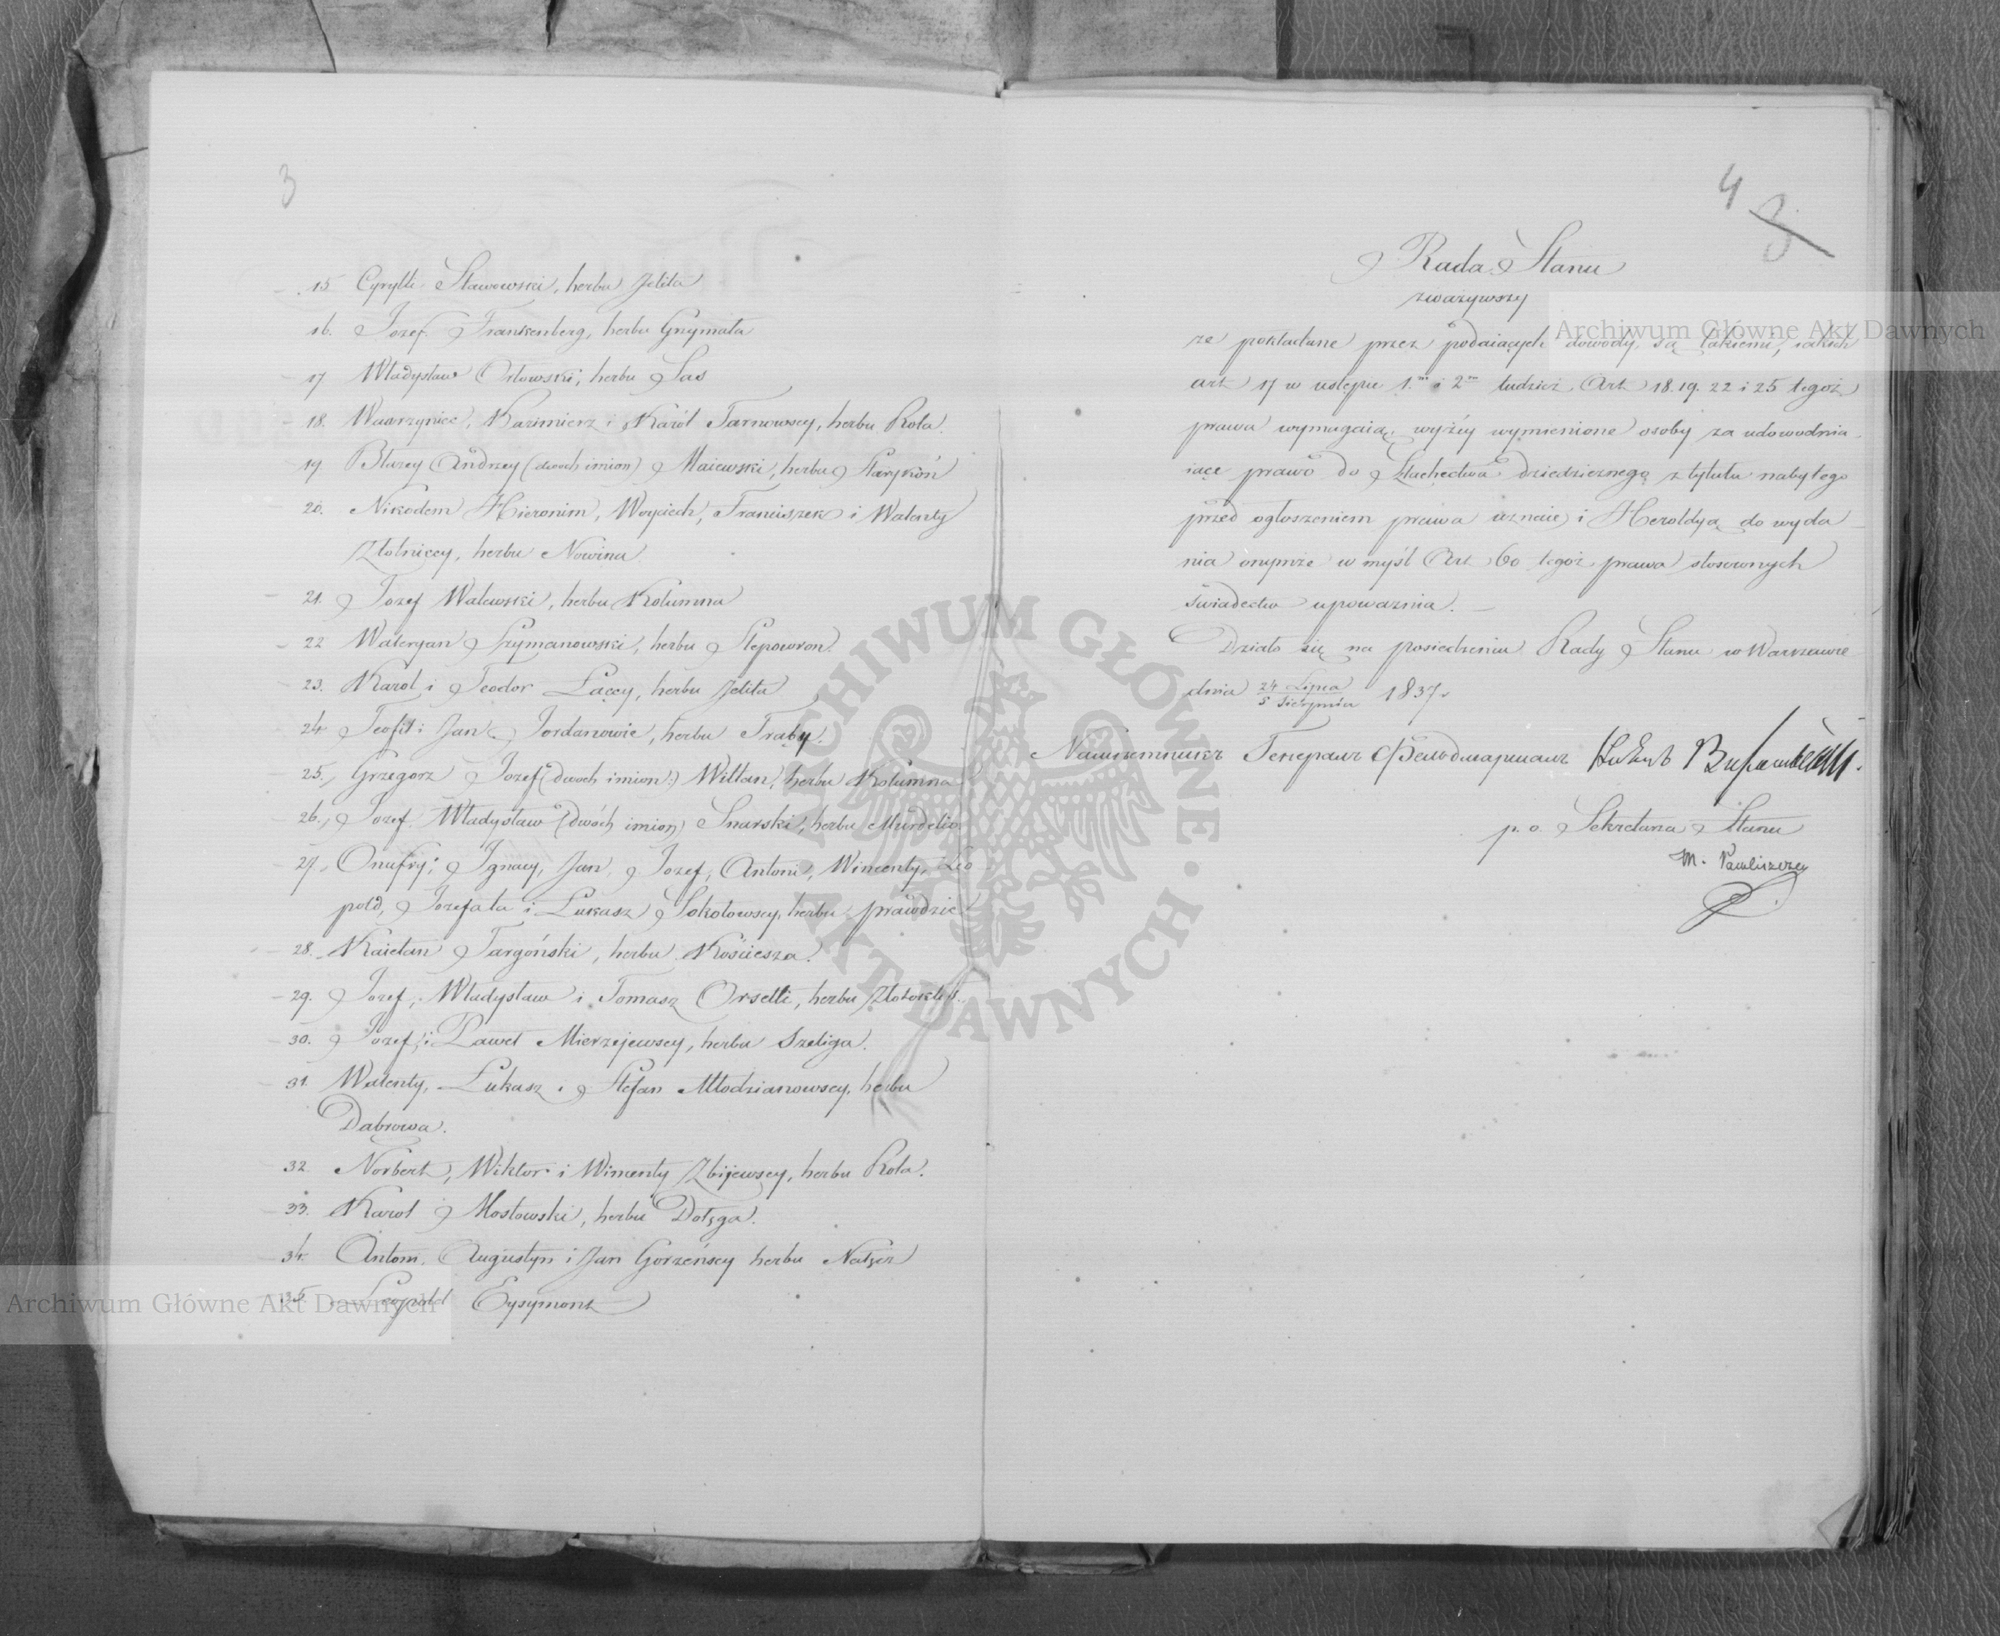 3
15 Cyrylli Sławowski, herbu Jelita
16. Jozef Frankenberg, herbu Grzymała
17 Władysław Orłowski, herbu Sas
18. Wawrzyniec, Kazimierz i Karól Tarnowscy, herbu Rola
19. Błażey Andrzey (dwoch imion) Maiewski, herbu Starykoń
20. Nikodem Hieronim, Woyciech, Franciszek i Walenty
Złotniccy, herbu Nowina
21. Jozef Walewski, herbu Kolumna
22 Waleryan Szymanowski, herbu Slepowron.
23. Karol i Teodor Łąccy, herbu Jelita
24 Teofil i Jan Jordanowie, herbu Trąby.
25. Grzegorz Jozef (dwoch imion) Wiltan, herbu Kolumna
26. Jozef Władysław (dwóch imion) Snarski, herbu Murdelio
27. Onufry, Ignacy, Jan, Jozef, Antoni, Wincenty, Leo
pold, Jozefata i Łukasz Sokołowscy, herbu prawdzic
28. Kaietan Targoński, herbu Kościesza.
29. Jozef, Władysław i Tomasz Orsetti, herbu Złotokłos.
30. Jozef i Paweł Mierzejewscy, herbu Szeliga.
31. Walenty, Łukasz i Stefan Młodzianowscy, herbu
Dąbrowa.
32. Norbert, Wiktor i Wincenty Zbijewscy, herbu Rola.
33. Karol Mostowski, herbu Dołęga.
34. Antoni, Augustyn i Jan Gorzeńscy herbu Nałęcz
35. Leopold Eysymont
4 3.
Rada Stanu
zważywszy
że pokładane przez podaiących dowody, są takiemi, iakich
art 17 w ustępie 1.m i 2m tudzież Art 18. 19. 22 i 25 tegoż
prawa wymagaią, wyżey wymienione osoby za udowodnia
iące prawo do Szlachectwa dziedzicznego z tytułu nabytego
przed ogłoszeniem prawa uznaie i Heroldyą do wyda
nia onymże w myśl Art 60 tegoż prawa stosownych
świadectw upoważnia.
Działo się na posiedzeniu Rady Stanu w Warszawie
dnia 24 Lipca / 5 Sierpnia 1837.
Намѣстникъ Генералъ Фельдмаршалъ
p. o. Sekretarza Stanu
M. Pawliszczew
Archiwum Główne Akt Dawnych
Archiwum Główne Akt Dawnych
ARCHIWUM GŁÓWNE AKT DAWNYCH